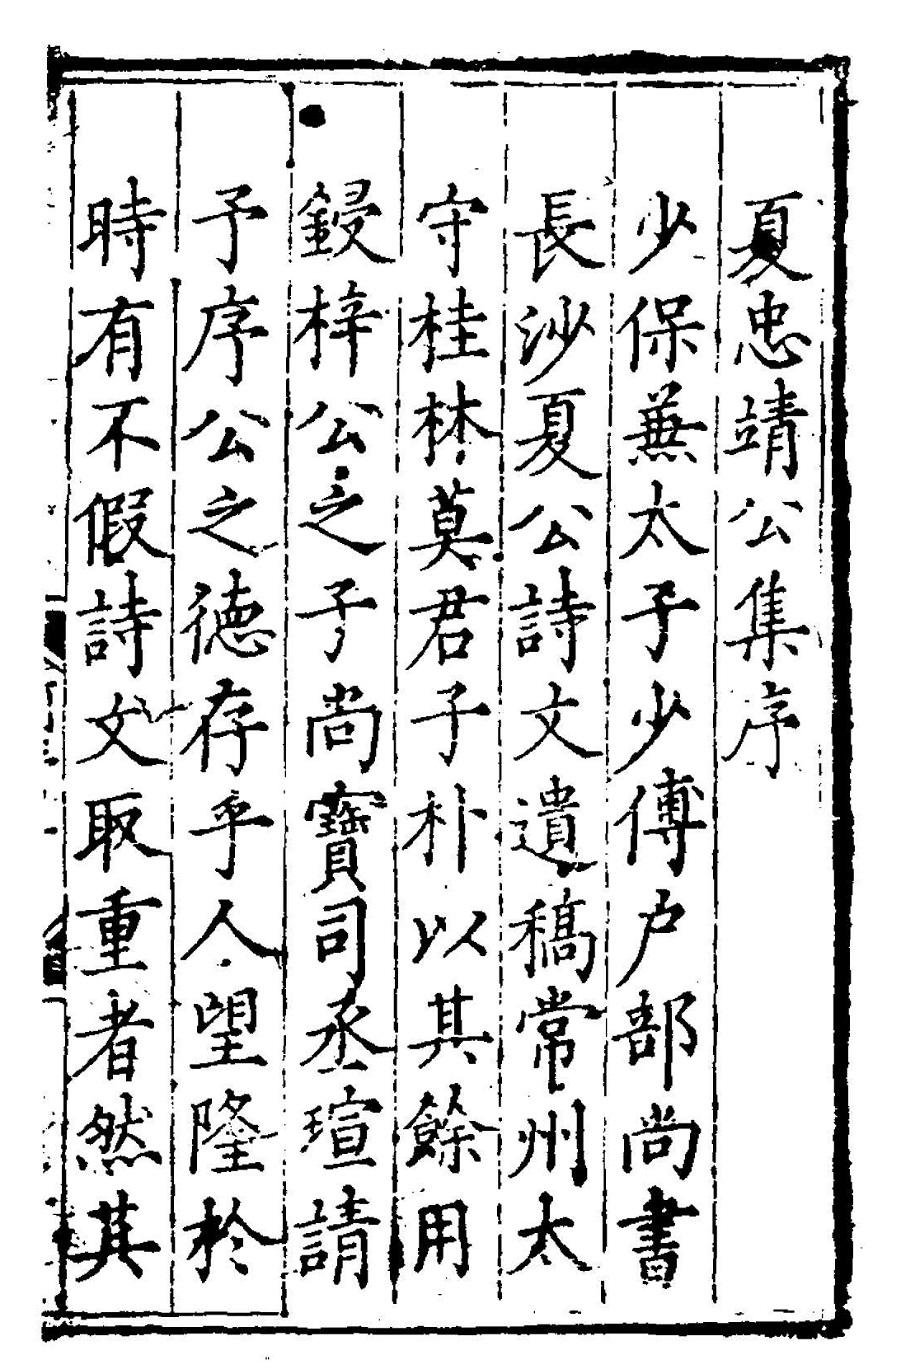 夏忠靖公集序
少保兼太子少傅户部尚書
長沙夏公詩文遺稿常州太
守桂林莫君子朴以其餘用
鋟梓公之子尚寶司丞瑄請
予序公之德存乎人望隆於
時有不假詩文取重者然其